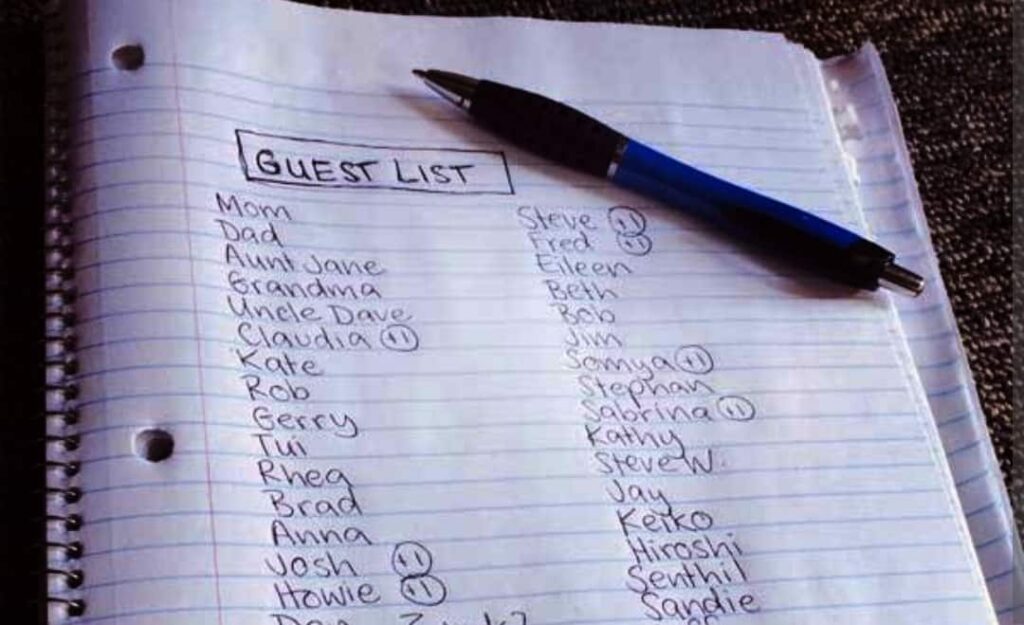 GUEST LIST
Mom
Dad
Aunt Jane
Grandma
Uncle Dave
Claudia +1
Kate
Rob
Gerry
Tui
Rhea
Brad
Anna
Josh +1
Howie +1
Steve +1
Fred +1
Eileen
Beth
Bob
Jim
Somya +1
Stephan
Sabrina +1
Kathy
Steve W.
Jay
Keiko
Hiroshi
Senthil
Sandie